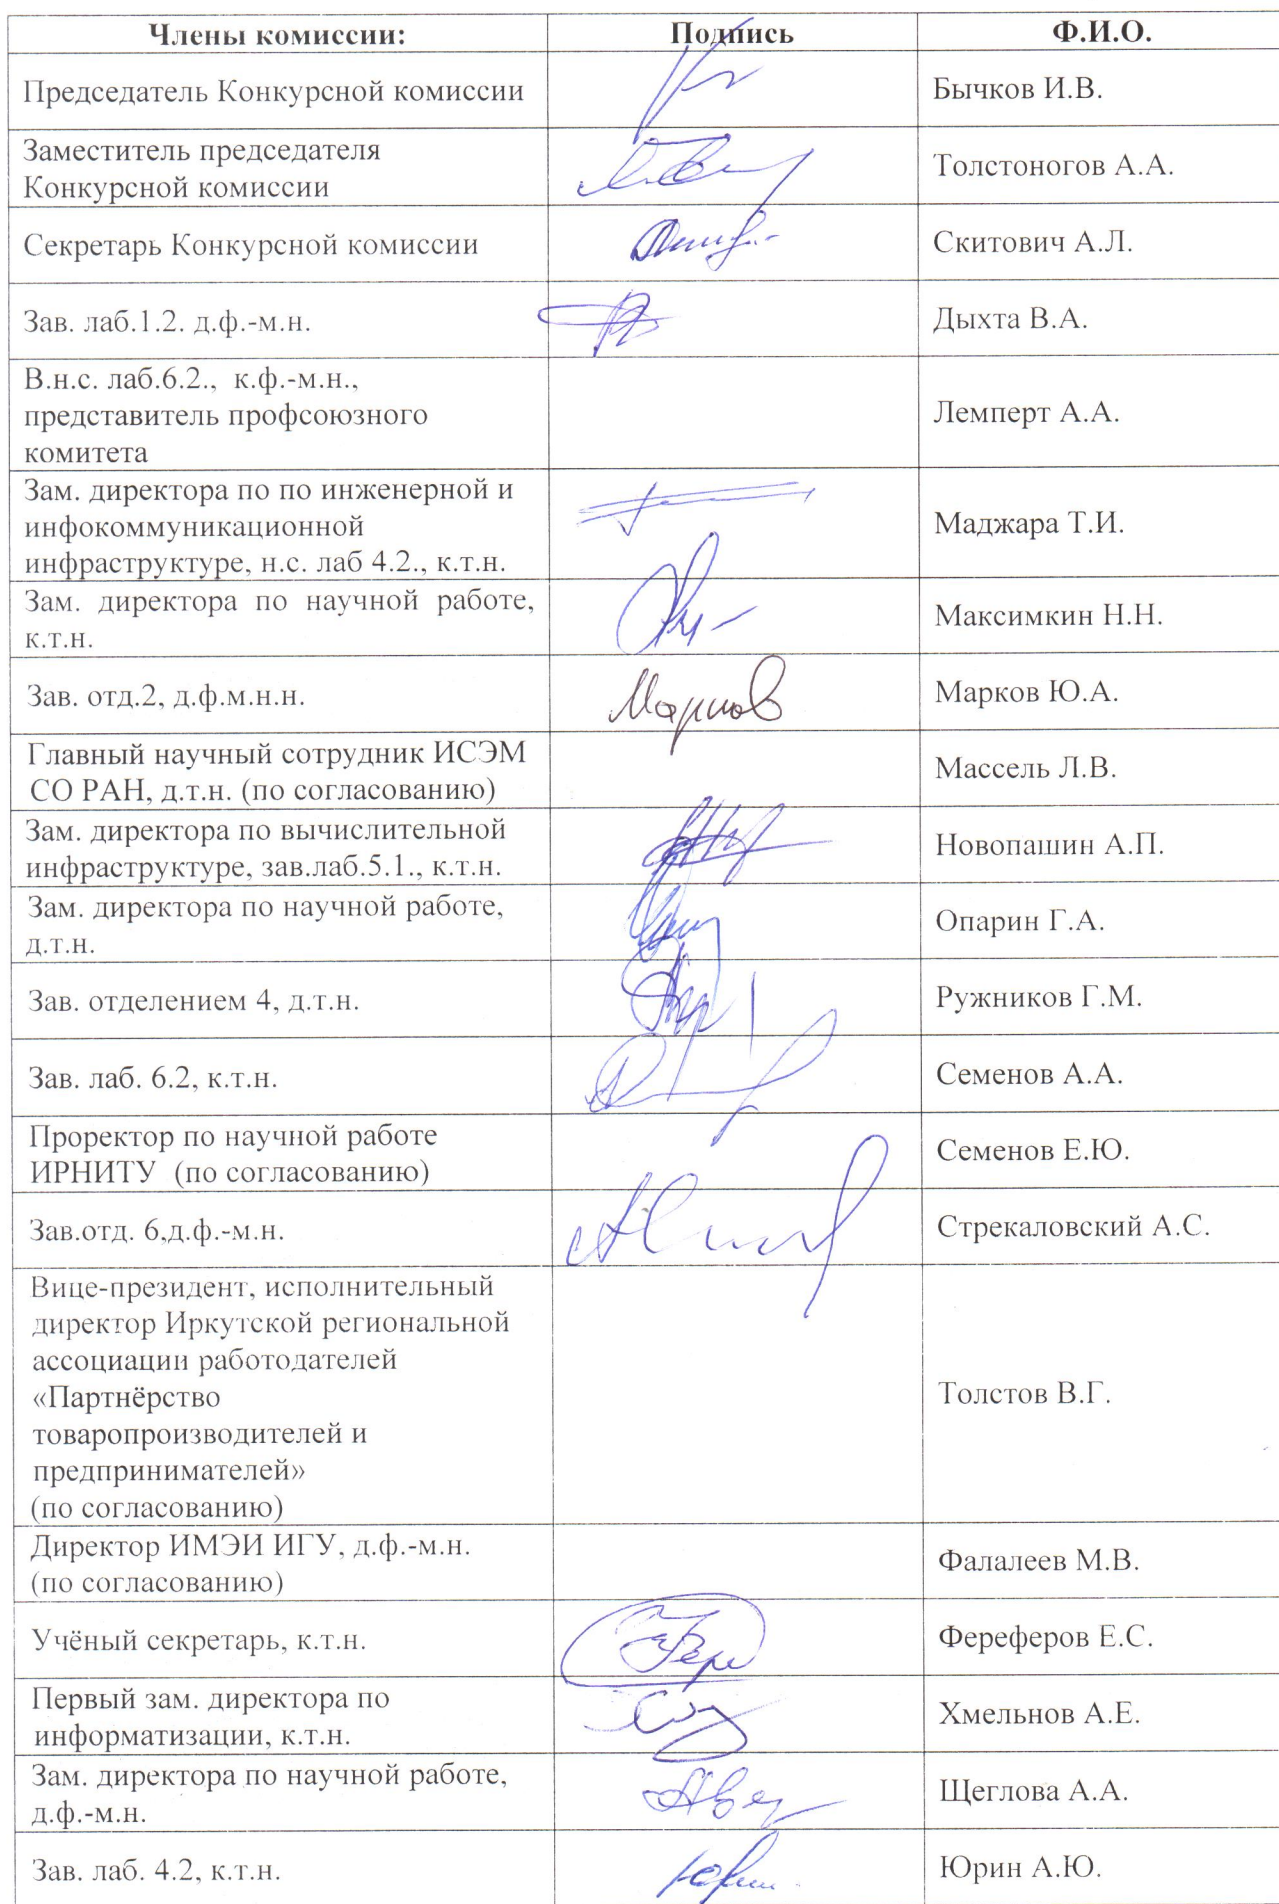 Члены комиссии: Подпись Ф.И.О.
Председатель Конкурсной комиссии Бычков И.В.
Заместитель председателя
Конкурсной комиссии Толстоногов А.А.
Секретарь Конкурсной комиссии Скитович А.Л.
Зав. лаб.1.2. д.ф.-м.н. Дыхта В.А.
В.н.с. лаб.6.2., к.ф.-м.н.,
представитель профсоюзного Лемперт А.А.
комитета
Зам. директора по по инженерной и
инфокоммуникационной Маджара Т.И.
инфраструктуре, н.с. лаб 4.2., к.т.н.
Зам. директора по научной работе, Максимкин Н.Н.
к.т.н.
Зав. отд.2, д.ф.м.н.н. Марков Марков Ю.А.
Главный научный сотрудник ИСЭМ Массель Л.В.
СО РАН, д.т.н. (по согласованию)
Зам. директора по вычислительной Новопашин А.П.
инфраструктуре, зав.лаб.5.1., к.т.н.
Зам. директора по научной работе, Опарин Г.А.
д.т.н.
Зав. отделением 4, д.т.н. Ружников Г.М.
Зав. лаб. 6.2, к.т.н. Семенов А.А.
Проректор по научной работе Семенов Е.Ю.
ИРНИТУ (по согласованию)
Зав.отд. 6,д.ф.-м.н. Стрекаловский А.С.
Вице-президент, исполнительный
директор Иркутской региональной
ассоциации работодателей
«Партнёрство Толстов В.Г.
товаропроизводителей и
предпринимателей»
(по согласованию)
Директор ИМЭИ ИГУ, д.ф.-м.н. Фалалеев М.В.
(по согласованию)
Учёный секретарь, к.т.н. Фереферов Е.С.
Первый зам. директора по Хмельнов А.Е.
информатизации, к.т.н.
Зам. директора по научной работе, Щеглова А.А.
д.ф.-м.н.
Зав. лаб. 4.2, к.т.н. Юрин А.Ю.